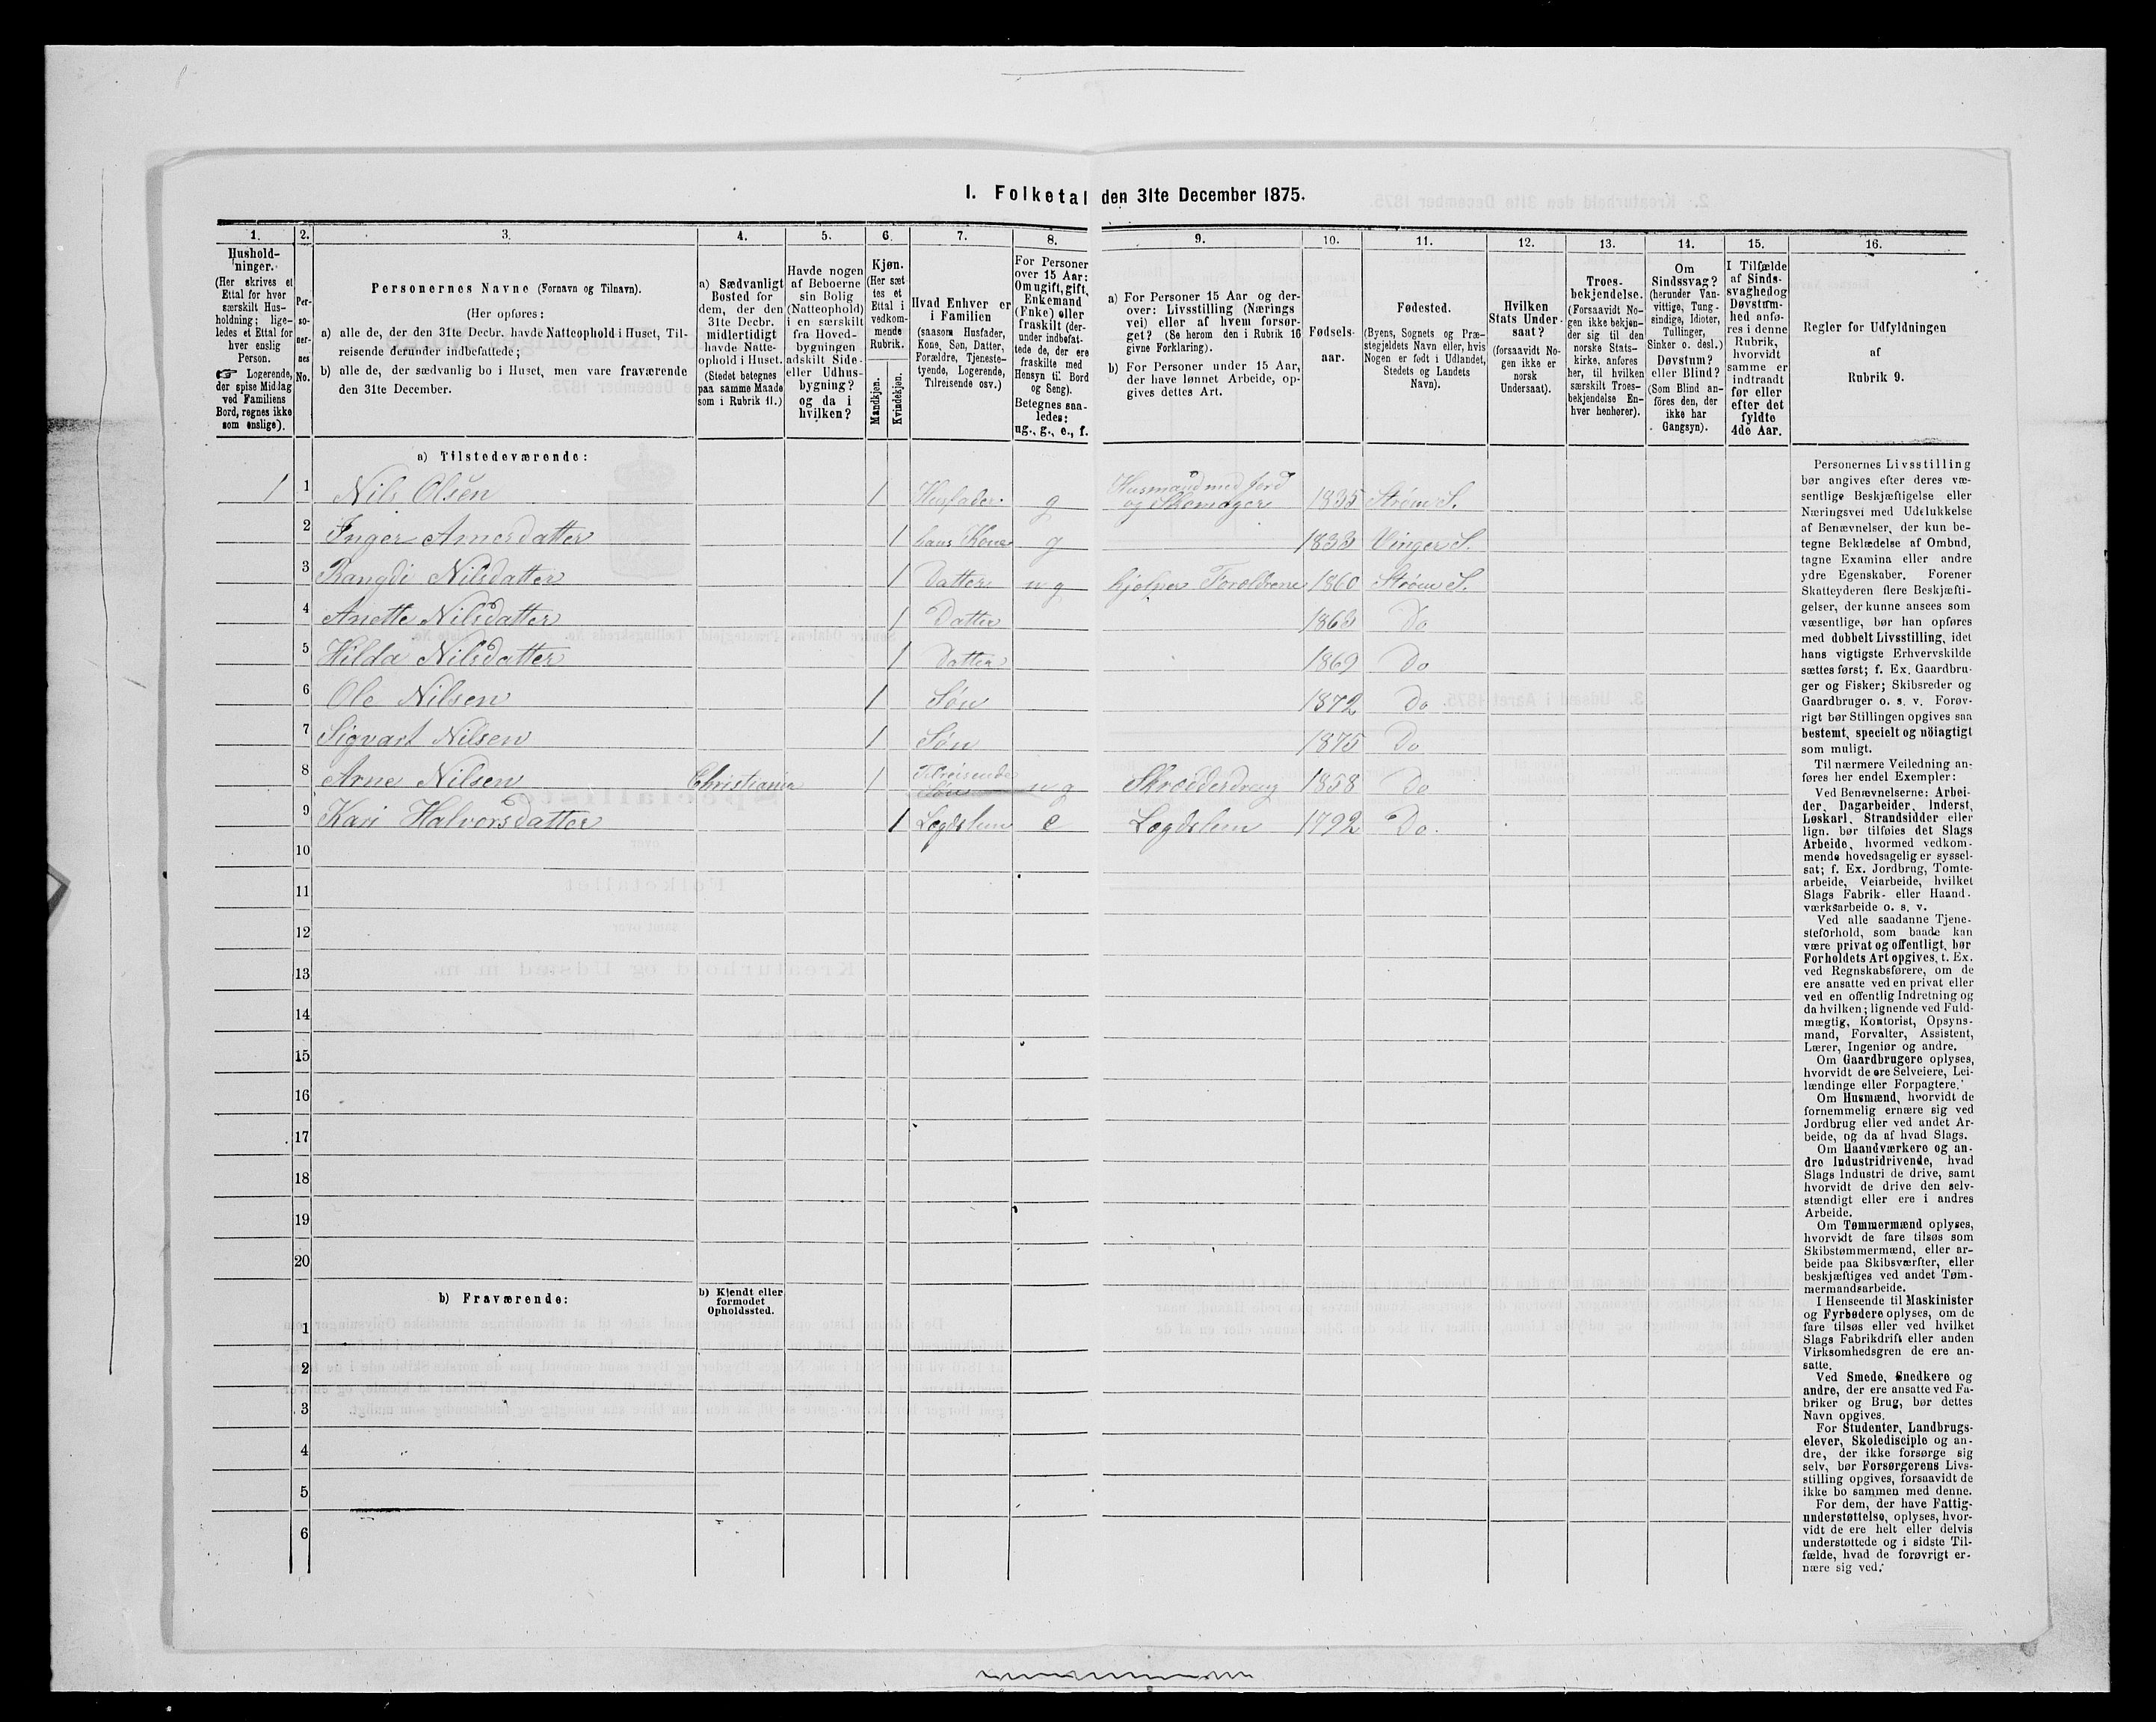 I. Folketal den 31te December 1875.
1. 2. 3. 4. 5. 6. 7. 8. 9. 10. 11. 12. 13. 14. 15. 16.
Hushold-
ninger.
(Her skrives et
Ettal for hver
særskilt Hus-
holdning; lige-
ledes et Ettal for
hver enslig
Person.
☞ Logerende,
der spise Middag
ved Familiens
Bord, regnes ikke
som enslige).
Per-
so-
ner-
nes
No.
Personernes Navne (Fornavn og Tilnavn).
(Her opføres:
a) alle de, der den 31te Decbr. havde Natteophold i Huset, Til-
reisende derunder indbefattede;
b) alle de, der sædvanlig bo i Huset, men vare fraværende
den 31te December.
a) Sædvanligt
Bosted for
dem, der den
31te Decbr.
midlertidigt
havde Natte-
ophold i Huset.
(Stedet betegnes
paa samme Maade
som i Rubrik 11.)
Havde nogen
af Beboerne
sin Bolig
(Natteophold)
i en særskilt
fra Hoved-
bygningen
adskilt Side-
eller Udhus-
bygning?
og da i
hvilken?
Kjøn.
(Her sæt
tes et
Ettal i
vedkom-
mende
Rubrik.
Mandkjøn.
Kvindekjøn.
Hvad Enhver er
i Familien
(saasom Husfader,
Kone, Søn, Datter,
Forældre, Tjeneste-
tyende, Logerende,
Tilreisende osv.)
For Personer
over 15 Aar:
Om ugift, gift,
Enkemand
(Enke) eller
fraskilt (der-
under indbefat-
tede de, der ere
fraskilte med
Hensyn til Bord
og Seng).
Betegnes saa-
ledes:
ug., g., e., f.
a) For Personer 15 Aar og der-
over: Livsstilling (Nærings
vei) eller af hvem forsør-
get? (Se herom den i Rubrik 16
givne Forklaring).
b) For Personer under 15 Aar,
der have lønnet Arbeide, op-
gives dettes Art.
Fødsels-
aar.
Fødested.
(Byens, Sognets og Præ-
stegjeldets Navn eller, hvis
Nogen er født i Udlandet,
Stedets og Landets
Navn).
Hvilken
Stats Under-
saat?
(forsaavidt No-
gen ikke er
norsk
Undersaat).
Troes-
bekjendelse.
(Forsaavidt No-
gen ikke bekjen-
der sig til den
norske Stats-
kirke, anføres
her, til hvilken
særskilt Troes-
bekjendelse En-
hver henhører).
Om
Sindssvag?
(herunder Van-
vittige, Tung-
sindige, Idioter,
Tullinger,
Sinker o. desl.)
Døvstum?
eller Blind?
(Som Blind an-
föres den, der
ikke har
Gangsyn).
I Tilfælde
af Sinds-
svaghed og
Døvstum-
hed anfø-
res i denne
Rubrik,
hvorvidt
samme er
indtraadt
før eller
efter det
fyldte
4de Aar.
Regler for Udfyldningen
af
Rubrik 9.
a) Tilstedeværende:
1 1 Nils Olsen 1 Husfader g Husmand med Jord
og Skomager 1835 Strøm S.
2 Inger Arnesdatter 1 hans Kone g 1833 Vinger S.
3 Rangdi Nilsdatter 1 Datter ug hjelper Forældrene 1860 Strøm S.
4 Anette Nilsdatter 1 Datter 1863 Do
5 Hilda Nilsdatter 1 Datter 1869 Do
6 Ole Nilsen 1 Søn 1872 Do
7 Sigvart Nilsen 1 Søn 1875 Do
8 Arne Nilsen Christiania 1 Tilreisende
Søn ug Skrædderdreng 1858 Do
9 Kari Halvorsdatter 1 Lægdslem e Lægdslem 1792 Do.
10
11
12
13
14
15
16
17
18
19
20
b) Fraværende:
b) Kjendt eller
formodet
Opholdssted.
1
2
3
4
5
6
Personernes Livsstilling
bør angives efter deres væ-
sentlige Beskjæftigelse eller
Næringsvei med Udelukkelse
af Benævnelser, der kun be-
tegne Beklædelse af Ombud,
tagne Examina eller andre
ydre Egenskaber. Forener
Skatteyderen flere Beskjæfti-
gelser, der kunne ansees som
væsentlige, bør han opføres
med dobbelt Livsstilling, idet
hans vigtigste Erhvervskilde
sættes først; f. Ex. Gaardbru-
ger og Fisker; Skibsreder og
Gaardbruger o. s. v. Forøv-
rigt bør Stillingen opgives saa
bestemt, specielt og nöiagtigt
som muligt.
Til nærmere Veiledning an-
føres her endel Exempler:
Ved Benævnelserne: Arbei-
der, Dagarbeider, Inderst,
Løskarl, Strandsidder eller
lign. bør tilføies det Slags
Arbeide, hvormed vedkom-
mende hovedsagelig er syssel-
sat; f. Ex. Jordbrug, Tomte-
arbeide, Veiarbeide, hvilket
Slags Fabrik- eller Haand-
værksarbeide o. s. v.
Ved alle saadanne Tjene-
steforhold, som baade kan
være privat og offentligt, bør
Forholdets Art opgives, t. Ex.
ved Regnskabsførere, om de
ere ansatte ved en privat eller
ved en offentlig Indretning og
da hvilken; lignende ved Fuld-
mægtig, Kontorist, Opsyns-
mand, Forvalter, Assistent,
Lærer, Ingeniør og andre.
Om Gaardbrugere oplyses,
hvorvidt de ere Selveiere, Lei-
lændinge eller Forpagtere.
Om Husmænd, hvorvidt de
fornemmelig ernære sig ved
Jordbrug eller ved andet Ar-
beide, og da af hvad Slags.
Om Haandværkere og an-
dre Industridrivende, hvad
Slags Industri de drive, samt
hvorvidt de drive den selv-
stændigt eller ere i andres
Arbeide.
Om Tømmermænd oplyses,
hvorvidt de fare tilsøs som
Skibstømmermænd, eller ar-
beide paa Skibsværfter, eller
beskjæftiges ved andet Tøm-
mermandsarbeide.
I Henseende til Maskinister
og Fyrbødere oplyses, om de
fare tilsøs eller ved hvilket
Slags Fabrikdrift eller anden
Virksomhedsgren de ere an-
satte.
Ved Smede, Snedkere og
andre, der ere ansatte ved Fa-
briker og Brug, bør dettes
Navn opgives.
For Studenter, Landbrugs-
elever, Skoledisciple og an-
dre, der ikke forsørge sig
selv, bør Forsørgerens Livs-
stilling opgives, forsaavidt de
ikke bo sammen med denne.
For dem, der have Fattig-
understøttelse, oplyses, hvor-
vidt de ere helt eller delvis
understøttede og i sidste Til-
fælde, hvad de forøvrigt er-
nære sig ved.